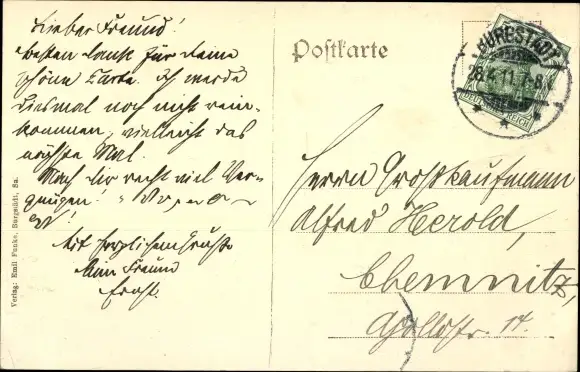 Lieber Freund!
besten Dank für Deine
schöne Karte. Ich werde
diesmal noch nicht rein-
kommen, vielleicht das
nächste Mal.
Mach dir recht viel Ver-
gnügen!
Mit herzlichem Gruße
Dein Freund
Ernst.
Verlag: Emil Funke, Burgstädt, Sa.
Postkarte
BURGSTÄDT
26.4.11. 7-8V.
DEUTSCHES REICH
Herrn Großkaufmann
Alfred Herold,
Chemnitz,
str. 14.